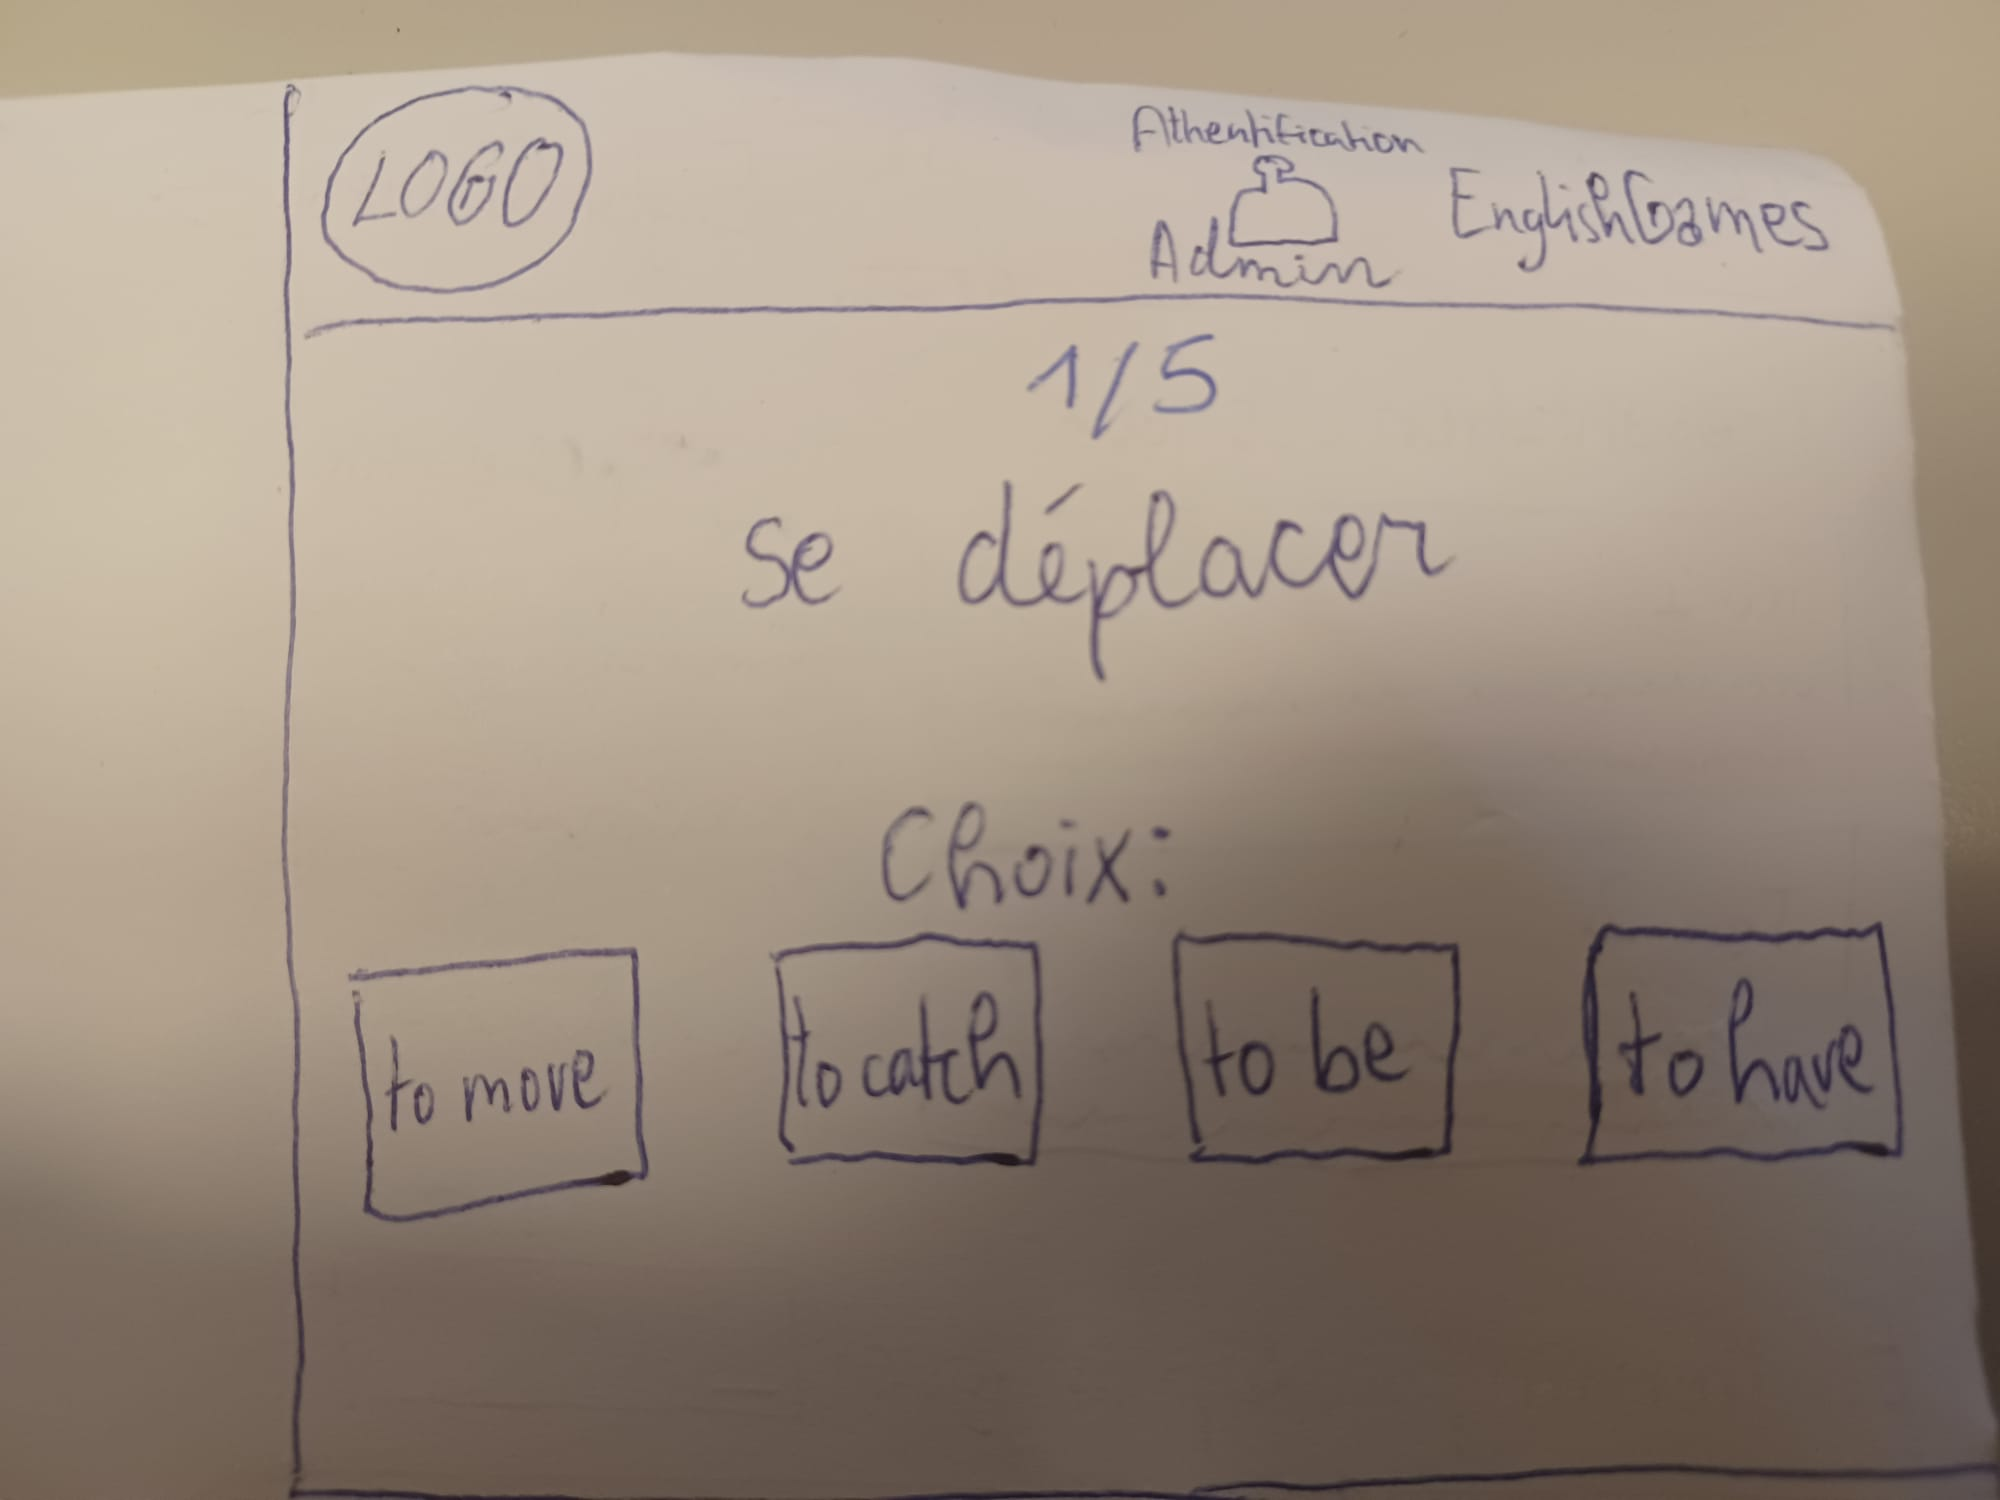 LOGO
Athentification
Admin
EnglishGames
1/5
se déplacer
Choix:
to move
to catch
to be
to have